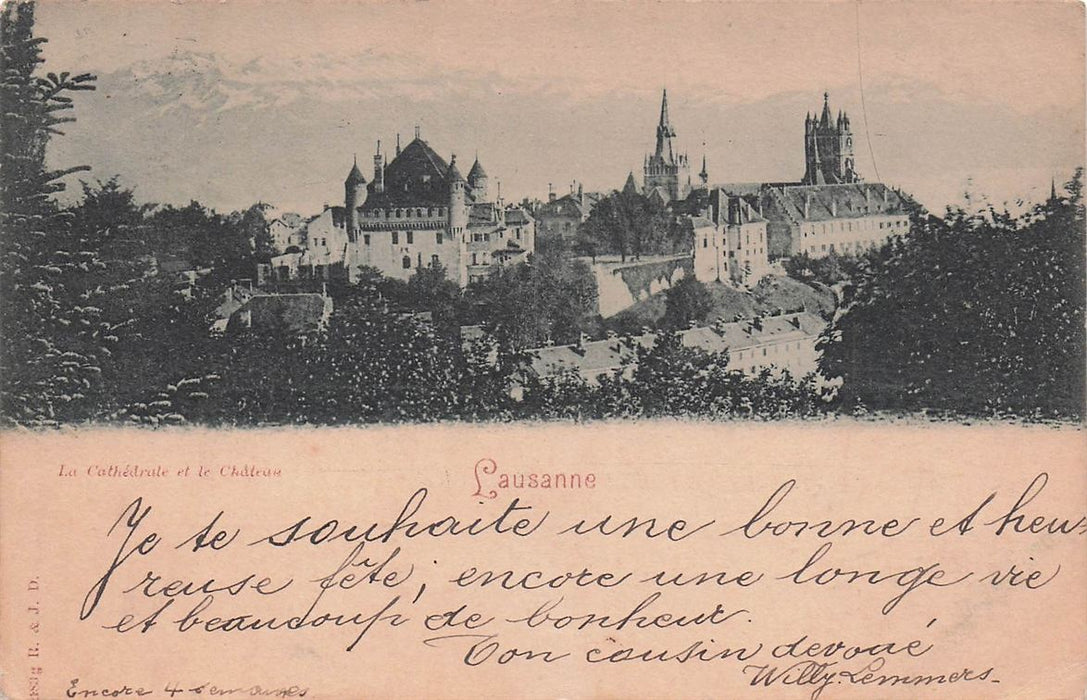 La Cathédrale et le Château
Lausanne
Je te souhaite une bonne et heu
reuse fête; encore une longe vie
et beaucoup de bonheur.
Ton cousin devoué
Willy Lemmers
Encore 4 semaines
R. & J. D.